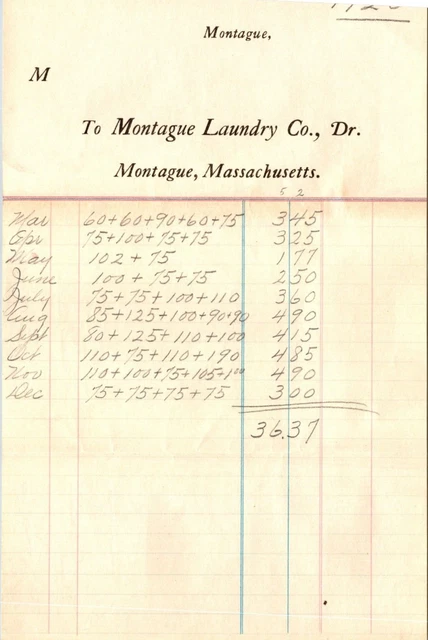 Montague,
M
To Montague Laundry Co., Dr.
Montague, Massachusetts.
5 2
Mar 60+60+90+60+75 3 45
Apr 75+100+75+75 3 25
May 102 + 75 1 77
June 100 + 75+75 2 50
July 75+75+100+110 3 60
Aug 85+125+100+90+90 4 90
Sept 80+125+110+100 4 15
Oct 110+75+110+190 4 85
Nov 110+100+75+105+1⁰⁰ 4 90
Dec 75+75+75+75 3 00
36.37